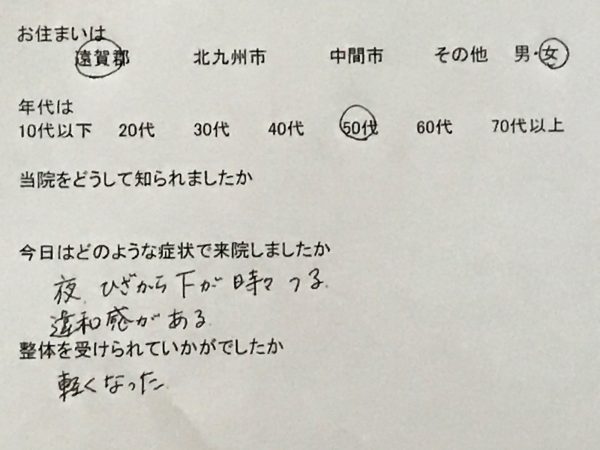 お住まいは
遠賀郡 北九州市 中間市 その他 男・女
年代は
10代以下 20代 30代 40代 50代 60代 70代以上
当院をどうして知られましたか
今日はどのような症状で来院しましたか
夜、ひざから下が時々つる
違和感がある
整体を受けられていかがでしたか
軽くなった